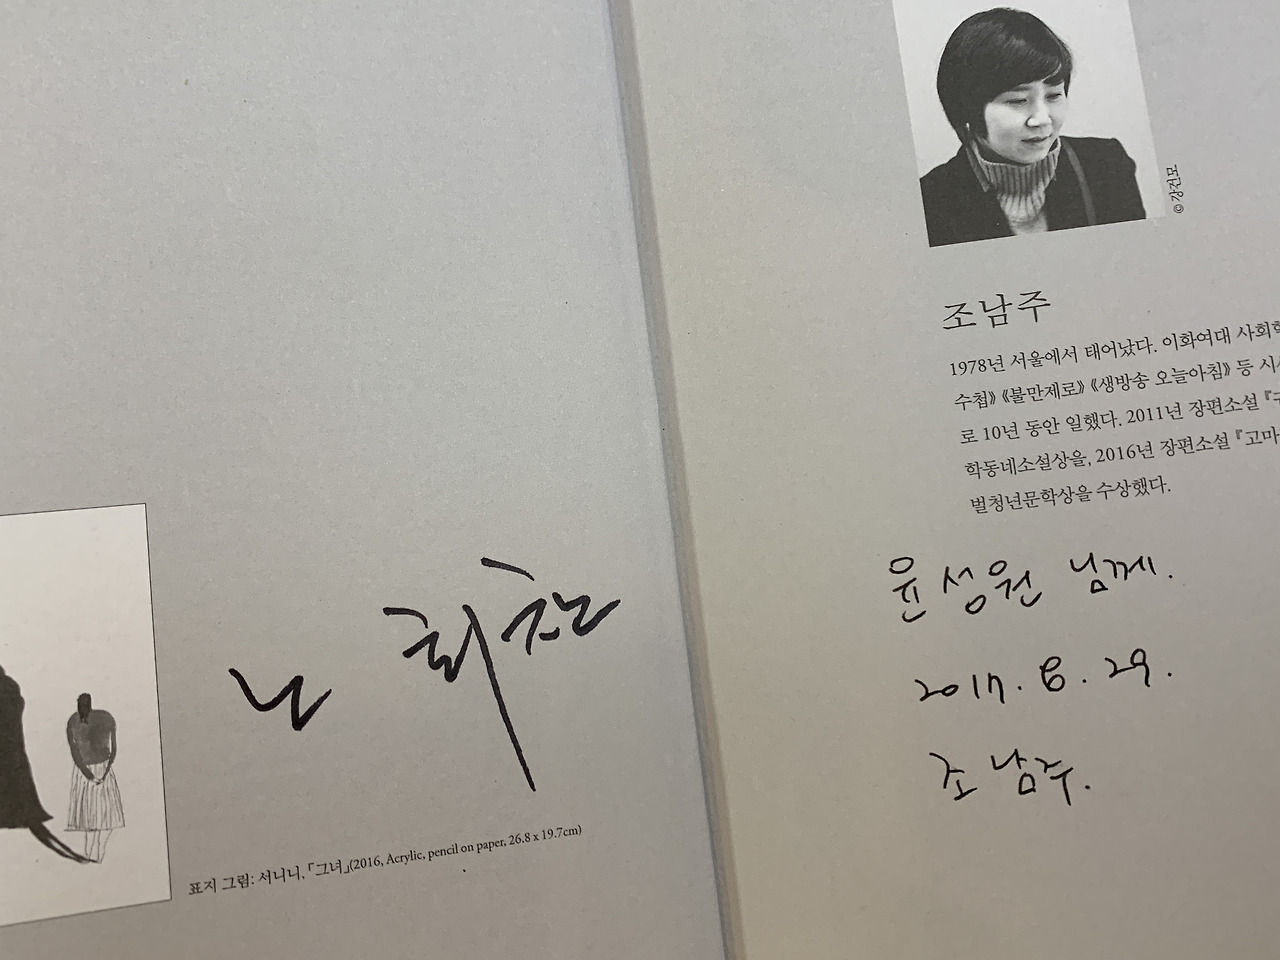 노 회찬
표지 그림: 서니니, 「그녀」(2016, Acrylic, pencil on paper, 26.8 x 19.7cm)
© 강진모
조남주
1978년 서울에서 태어났다. 이화여대 사회학
수첩》《불만제로》《생방송 오늘아침》 등 시사
로 10년 동안 일했다. 2011년 장편소설 『귀
학동네소설상을, 2016년 장편소설 『고마
벌청년문학상을 수상했다.
윤성원 님께.
2017. 6. 29.
조남주.